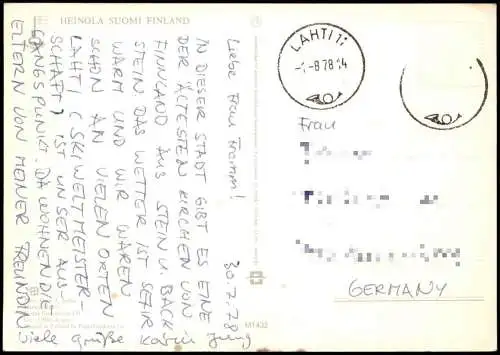 HEINOLA SUOMI FINLAND
30.7.78
Liebe Frau Fromm!
IN DIESER STADT GIBT ES EINE
DER ÄLTESTEN KIRCHEN VON
FINNLAND AUS STEIN U. BACK
STEIN DAS WETTER IST SEHR
WARM UND WIR WAREN
SCHON AN VIELEN ORTEN
LAHTI (SKIWELTMEISTER-
SCHAFT) IST UNSER AUS
GANGSPUNKT. DA WOHNEN DIE
ELTERN VON MEINER FREUNDIN
viele grüße Karin Jung
LAHTI 11
-1.-8 78 14
Frau
GERMANY
M1432